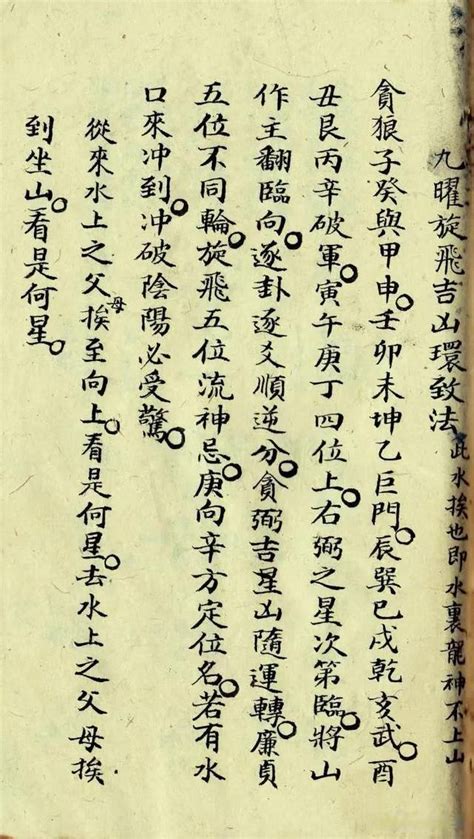 九曜旋飛吉凶環致法 此水挨也即水裏龍神不上山
貪狼子癸與甲申。壬卯未坤乙巨門。辰巽巳戌乾亥武。酉
丑艮丙辛破軍。寅午庚丁四位上。右弼之星次第臨。將山
作主翻臨向。逐卦逐爻順逆分。貪弼吉星凶隨運轉。廉貞
五位不同輪。旋飛五位流神忌。庚向辛方定位名。若有水
口來冲到。冲破陰陽必受驚。
從來水上之父母挨至向上。看是何星。去水上之父母挨
到坐山。看是何星。